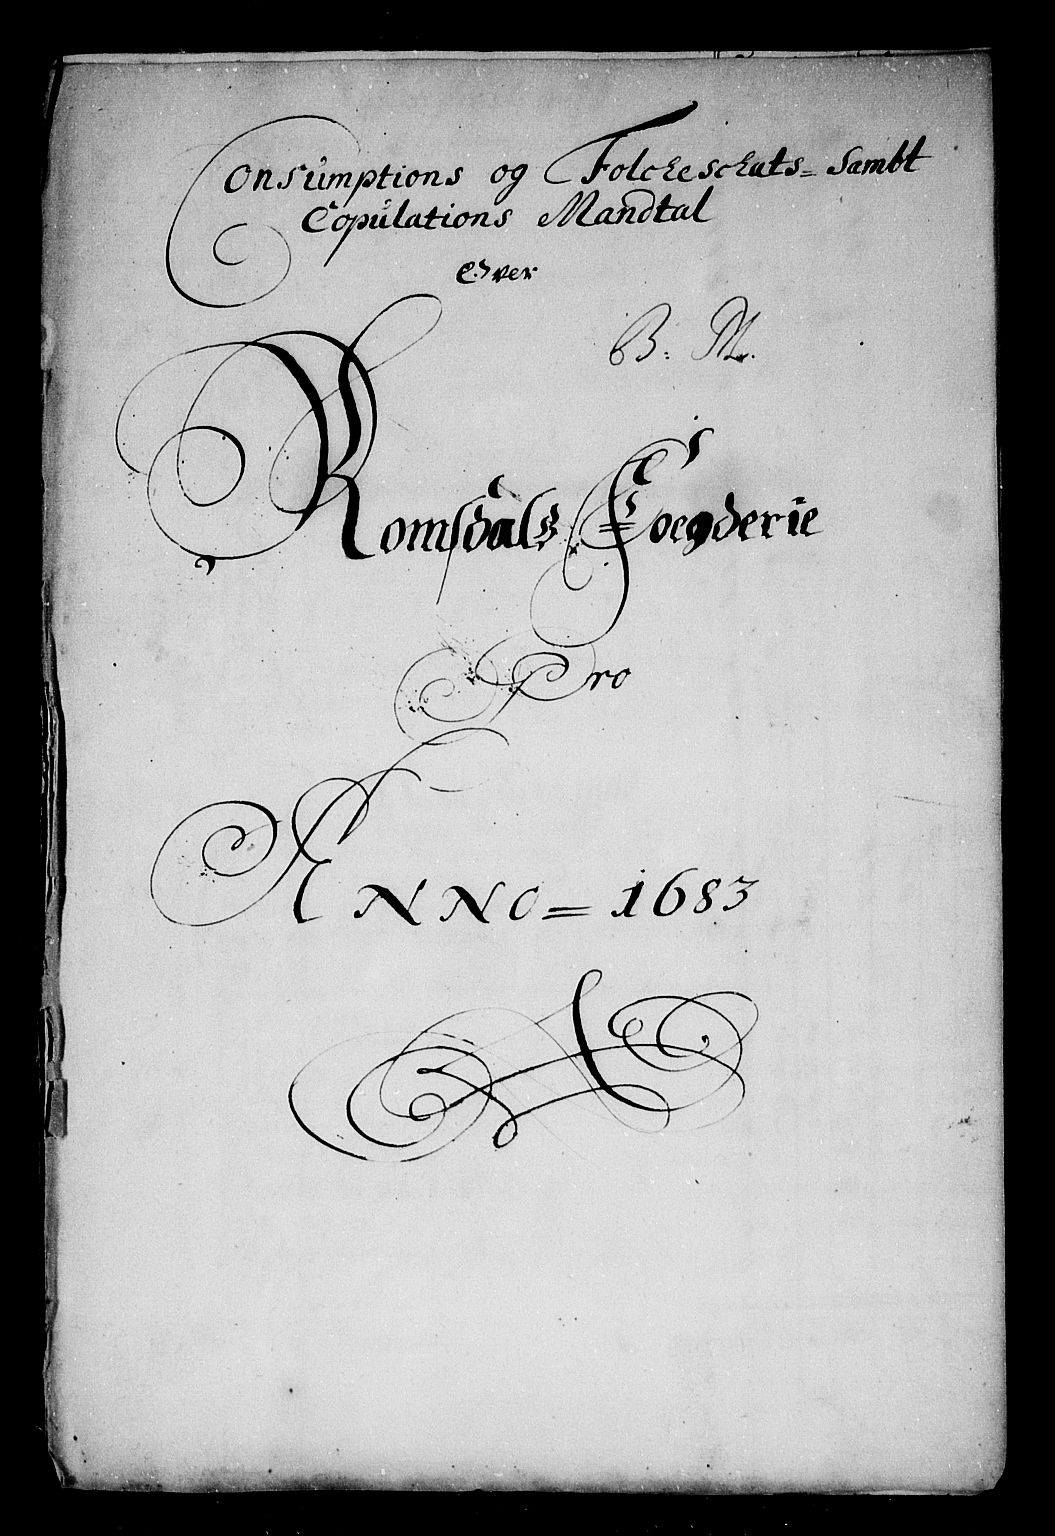 Consumptions og Folckeschats= Sambt
Copulations Mandtal
Ofver
B: M.
Romsdals Foegderie
Pro
ANNO= 1683